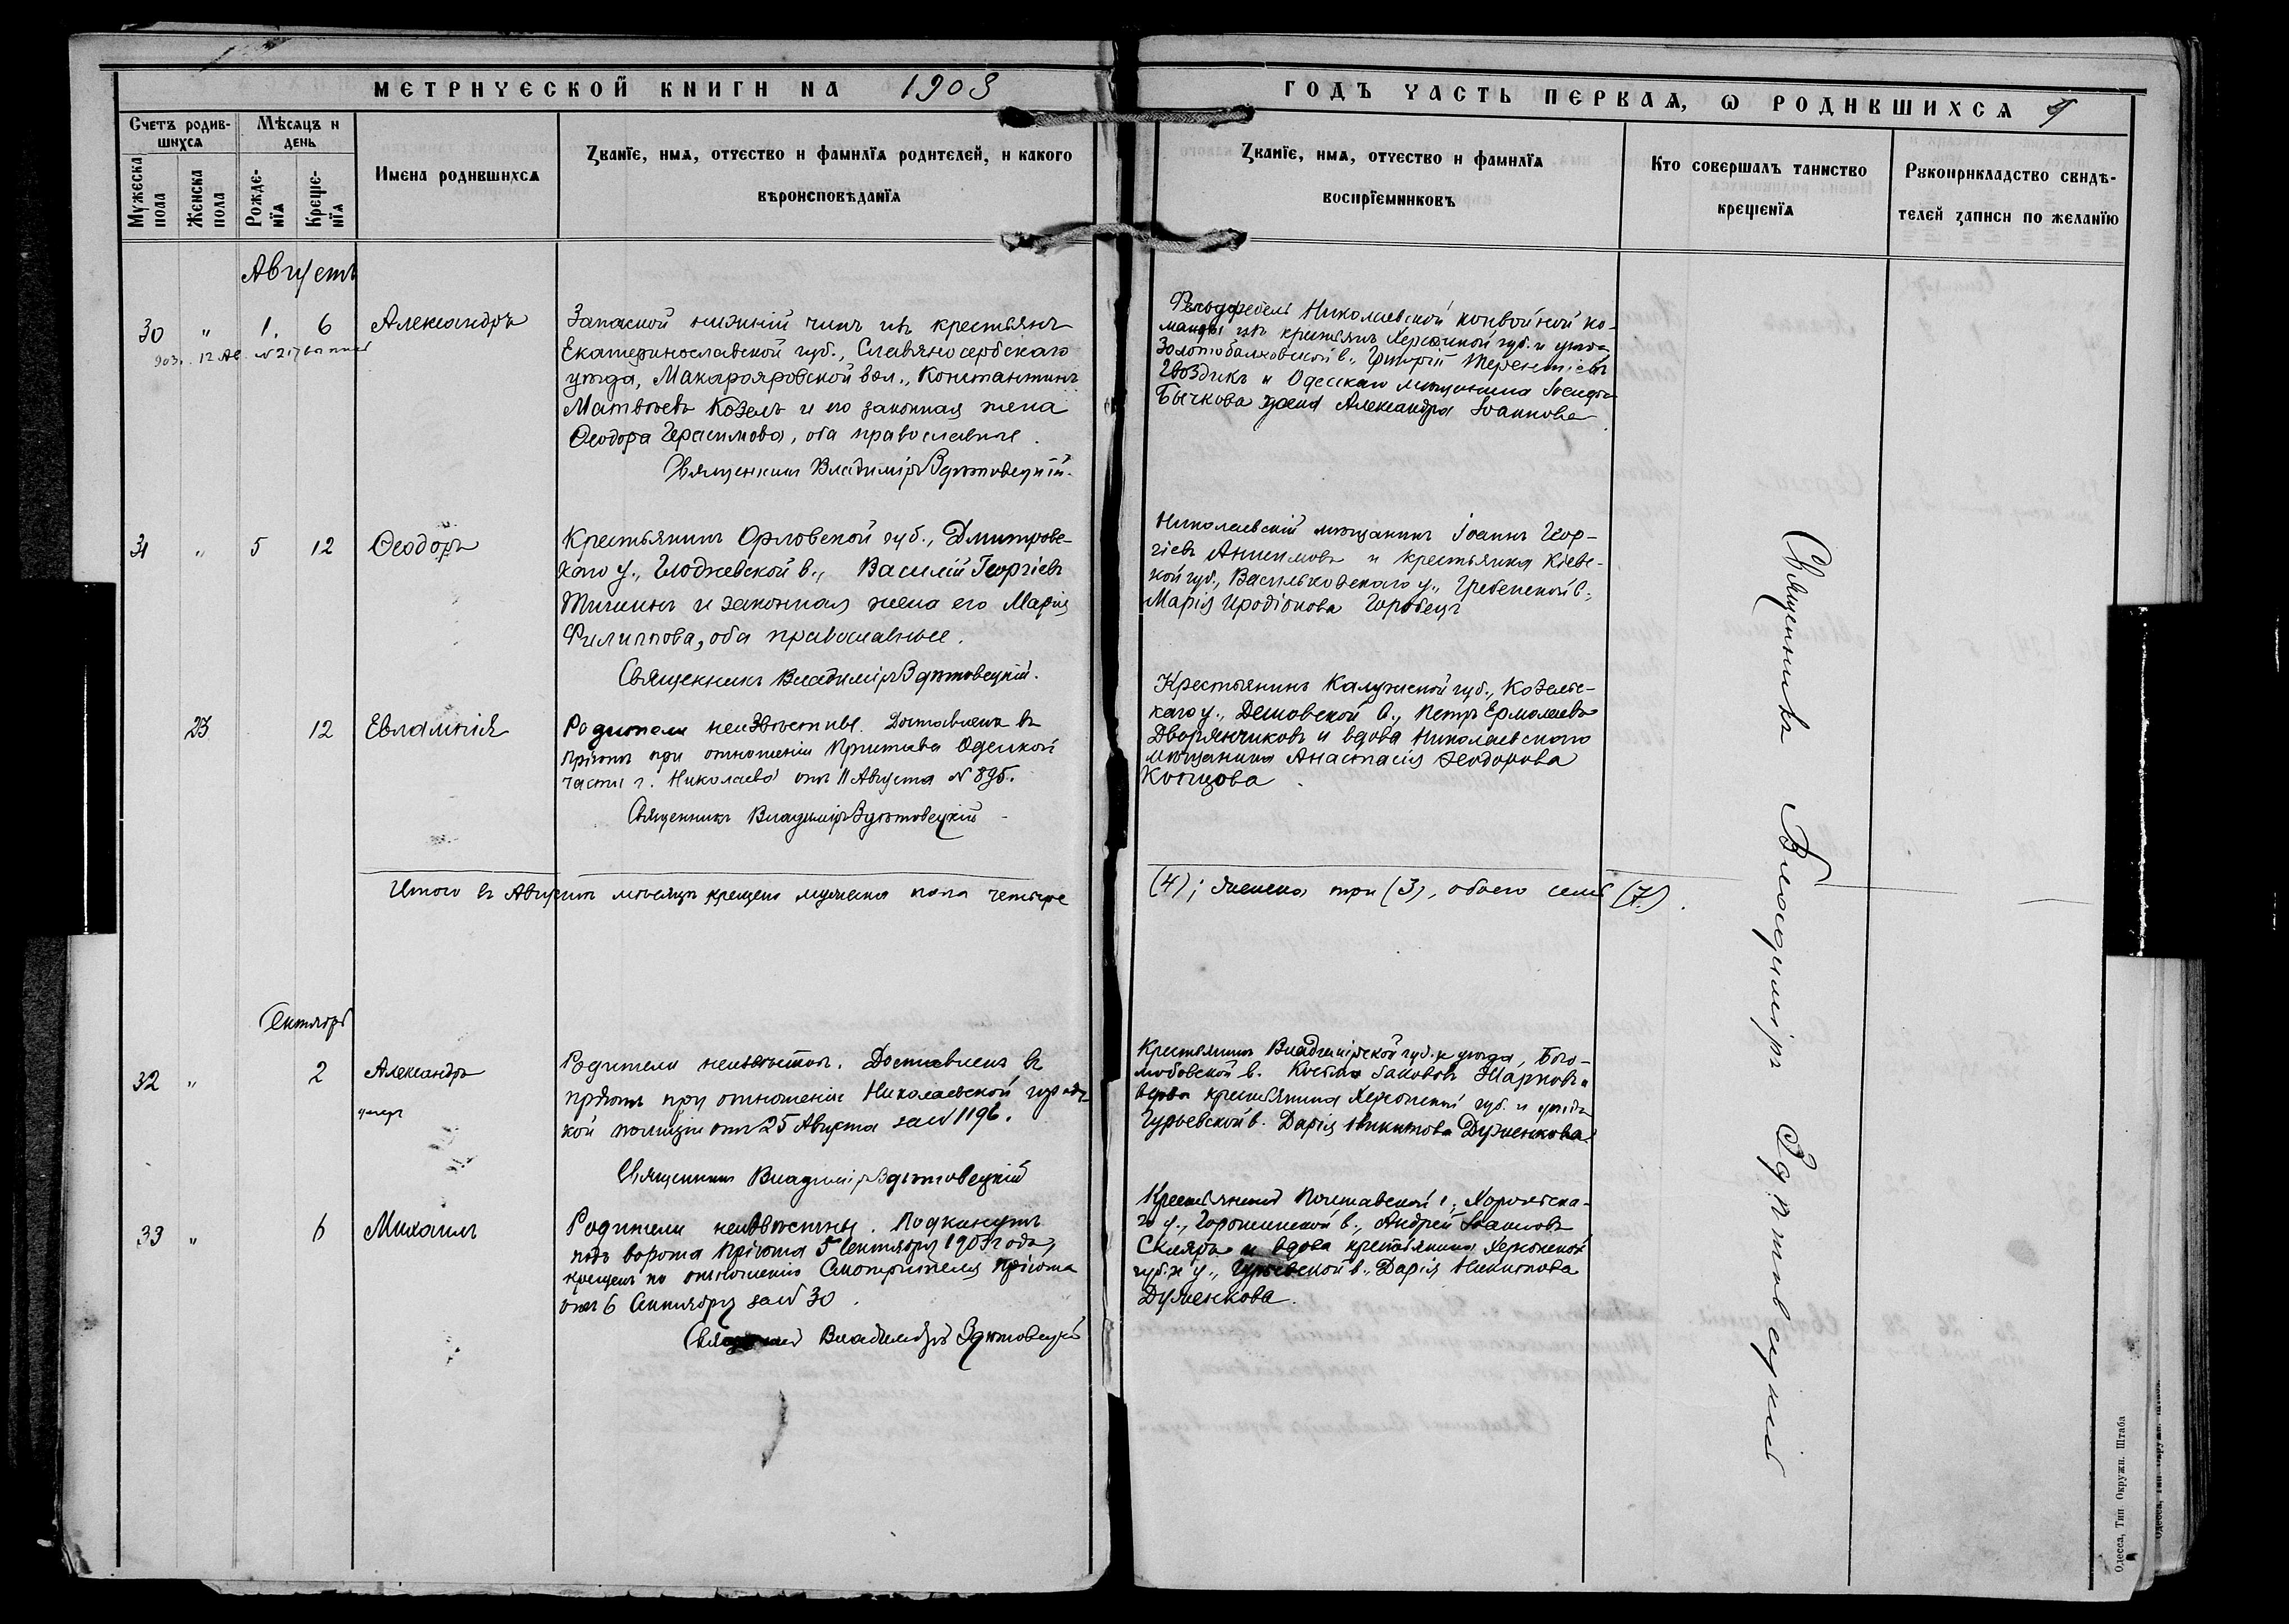 МЕТРИЧЕСКОЙ КНИГИ НА 1903
ГОДЪ ЧАСТЬ ПЕРВАѦ, Ѡ РОДИВШИХСѦ
Счетъ родив-
шихсѧ
Мѣсѧцъ и
день
Мужеска
пола
Женска
пола
Рожде-
нїѧ
Креще-
нїѧ
Имена родившихсѧ
Званїе, имѧ, отчество и фамилїѧ родителей, и какого
вѣроисповѣданїѧ
Званїе, имѧ, отчество и фамилїѧ
воспрїемниковъ
Кто совершалъ таинство
крещенїѧ
Рукоприкладство свидѣ-
телей записи по желанїю
Августъ
30 " 1. 6 Александръ
Запасной нижній чинъ изъ крестьянъ
Екатеринославской губ., Славяносербскаго
уѣзда, Макарояровской вол., Константинъ
Матвѣевъ Козелъ и его законная жена
Ѳеодора Герасимова, оба православные.
Священникъ Владиміръ Здѣтовецкій.
Фельдфебель Николаевской конвойной ко-
манды изъ крестьянъ Херсонской губ. и уѣзда
Золотобалковской в., Григорій Терентіевъ
Гвоздикъ и Одесскаго мѣщанина Іосифа
Бычкова жена Александра Іоаннова
31 " 5 12 Ѳеодоръ
Крестьянинъ Орловской губ., Дмитровс-
каго у., Глодневской в., Василій Георгіевъ
Тишинъ и законная жена его Марія
Филиппова, оба православные.
Священникъ Владиміръ Здѣтовецкій.
Николаевскій мѣщанинъ Іоаннъ Геор-
гіевъ Анисимовъ и крестьянка Кіевс-
кой губ., Васильковскаго у., Гребенской в.,
Марія Иродіонова Горобецъ
23 12 Евлампія
Родители неизвѣстны. Доставлена въ
пріютъ при отношеніи Пристава Одесской
части г. Николаева отъ 11 Августа № 895.
Священникъ Владиміръ Здѣтовецкій
Крестьянинъ Калужской губ., Козельс-
каго у., Дешовской в., Петръ Ермолаевъ
Дворянчиковъ и вдова Николаевского
мѣщанина Анастасія Ѳеодорова
Копцова
Итого въ Августѣ мѣсяцѣ крещено мужеска пола четыре
(4); женска три (3), обоего семь (7).
Сентябрь
32 " 2 Александръ
умеръ
Родители неизвѣстны. Доставленъ въ
пріютъ при отношеніи Николаевской городс-
кой полиціи отъ 25 Августа за № 1196.
Священникъ Владиміръ Здѣтовецкій
Крестьянинъ Владимірской губ. и уѣзда, Бого-
любовской в. Косьма Іаковъ Жарковъ и
вдова крестьянина Херсонской губ. и уѣзда
Гурьевской в. Дарія Никитова Думенкова
33 " 6 Михаилъ
Родители неизвѣстны. Подкинутъ
подъ ворота Пріюта 5 Сентября 1903 года,
крещенъ по отношенію Смотрителя пріюта
отъ 6 Сентября за № 30.
Священникъ Владиміръ Здѣтовецкій
Крестьянинъ Полтавской г., Хорольска-
го у., Горошинской в., Андрей Іоанновъ
Скляръ и вдова крестьянина Херсонской
губ. и у., Гурьевской в., Дарія Никитова
Думенкова.
Священникъ Владиміръ Здѣтовецкій
Одесса, Тип. Окружн. Штаба